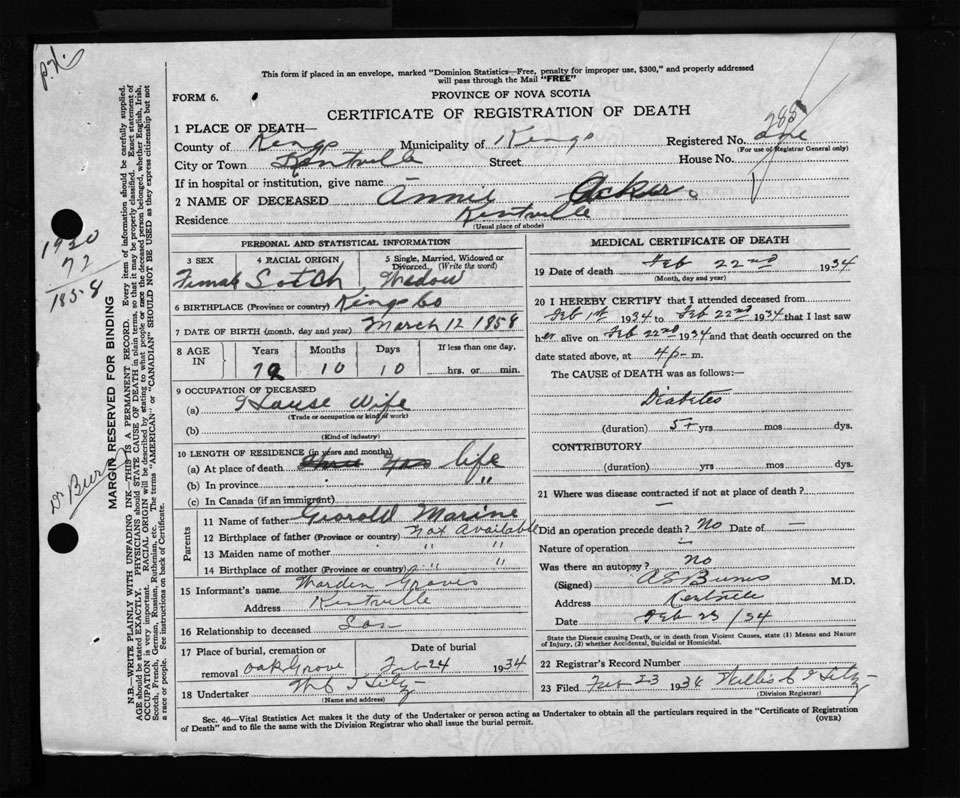 P.N.
This form if placed in an envelope, marked "Dominion Statistics—Free, penalty for improper use, $300," and properly addressed
will pass through the Mail "FREE"
FORM 6.
PROVINCE OF NOVA SCOTIA
CERTIFICATE OF REGISTRATION OF DEATH
288
1 PLACE OF DEATH—
County of Kings Municipality of Kings Registered No. one
(For use of Registrar General only)
City or Town Kentville Street House No.
If in hospital or institution, give name
2 NAME OF DECEASED Annie Acker
Residence Kentville
(Usual place of abode)
PERSONAL AND STATISTICAL INFORMATION
3 SEX 4 RACIAL ORIGIN 5 Single, Married, Widowed or
Divorced. (Write the word)
Female Sotch Widow
6 BIRTHPLACE (Province or country) Kings Co
7 DATE OF BIRTH (month, day and year) March 12 1858
8 AGE IN Years Months Days If less than one day.
10 10 hrs. or min.
9 OCCUPATION OF DECEASED
(a) House Wife
(Trade or occupation or kind of work)
(b)
(Kind of industry)
10 LENGTH OF RESIDENCE (in years and months)
(a) At place of death life
(b) In province "
(c) In Canada (if an immigrant)
Parents
11 Name of father Giorold Marine
12 Birthplace of father (Province or country) Not Available
13 Maiden name of mother " "
14 Birthplace of mother (Province or country) " "
15 Informant's name Warden Groves
Address Kentville
16 Relationship to deceased Son
17 Place of burial, cremation or removal Date of burial
Oak Grove Feb 24 1934
18 Undertaker
(Name and address)
MEDICAL CERTIFICATE OF DEATH
19 Date of death Feb 22nd 1934
(Month, day and year)
20 I HEREBY CERTIFY that I attended deceased from
Feb 1st 1934 to Feb 22nd 1934 that I last saw
her alive on Feb 22nd 1934 and that death occurred on the
date stated above, at 4 p- m.
The CAUSE of DEATH was as follows:—
Diabetes
(duration) 5+ yrs mos dys.
CONTRIBUTORY
(duration) yrs. mos. dys.
21 Where was disease contracted if not at place of death?
—
Did an operation precede death? No Date of —
Nature of operation —
Was there an autopsy? No
(Signed) A S Burns M.D.
Address Kentville
Date Feb 23 /34
State the Disease causing Death, or in death from Violent Causes, state (1) Means and Nature
of Injury, (2) whether Accidental, Suicidal or Homicidal.
22 Registrar's Record Number
23 Filed Feb 23 1934
(Division Registrar)
Sec. 46—Vital Statistics Act makes it the duty of the Undertaker or person acting as Undertaker to obtain all the particulars required in the "Certificate of Registration
of Death" and to file the same with the Division Registrar who shall issue the burial permit. (OVER)
MARGIN RESERVED FOR BINDING
N.B.—WRITE PLAINLY WITH UNFADING INK—THIS IS A PERMANENT RECORD. Every item of information should be carefully supplied.
AGE should be stated EXACTLY. PHYSICIANS should STATE CAUSE OF DEATH in plain terms, so that it may be properly classified. Exact statement of
OCCUPATION is very important. RACIAL ORIGIN will be described by stating to what people or race the deceased person belonged, whether English, Irish,
Scotch, French, German, Russian, Ruthenian, etc. The terms "AMERICAN" or "CANADIAN" SHOULD NOT BE USED as they express citizenship but not
a race or people. See instructions on back of Certificate.
72
1858